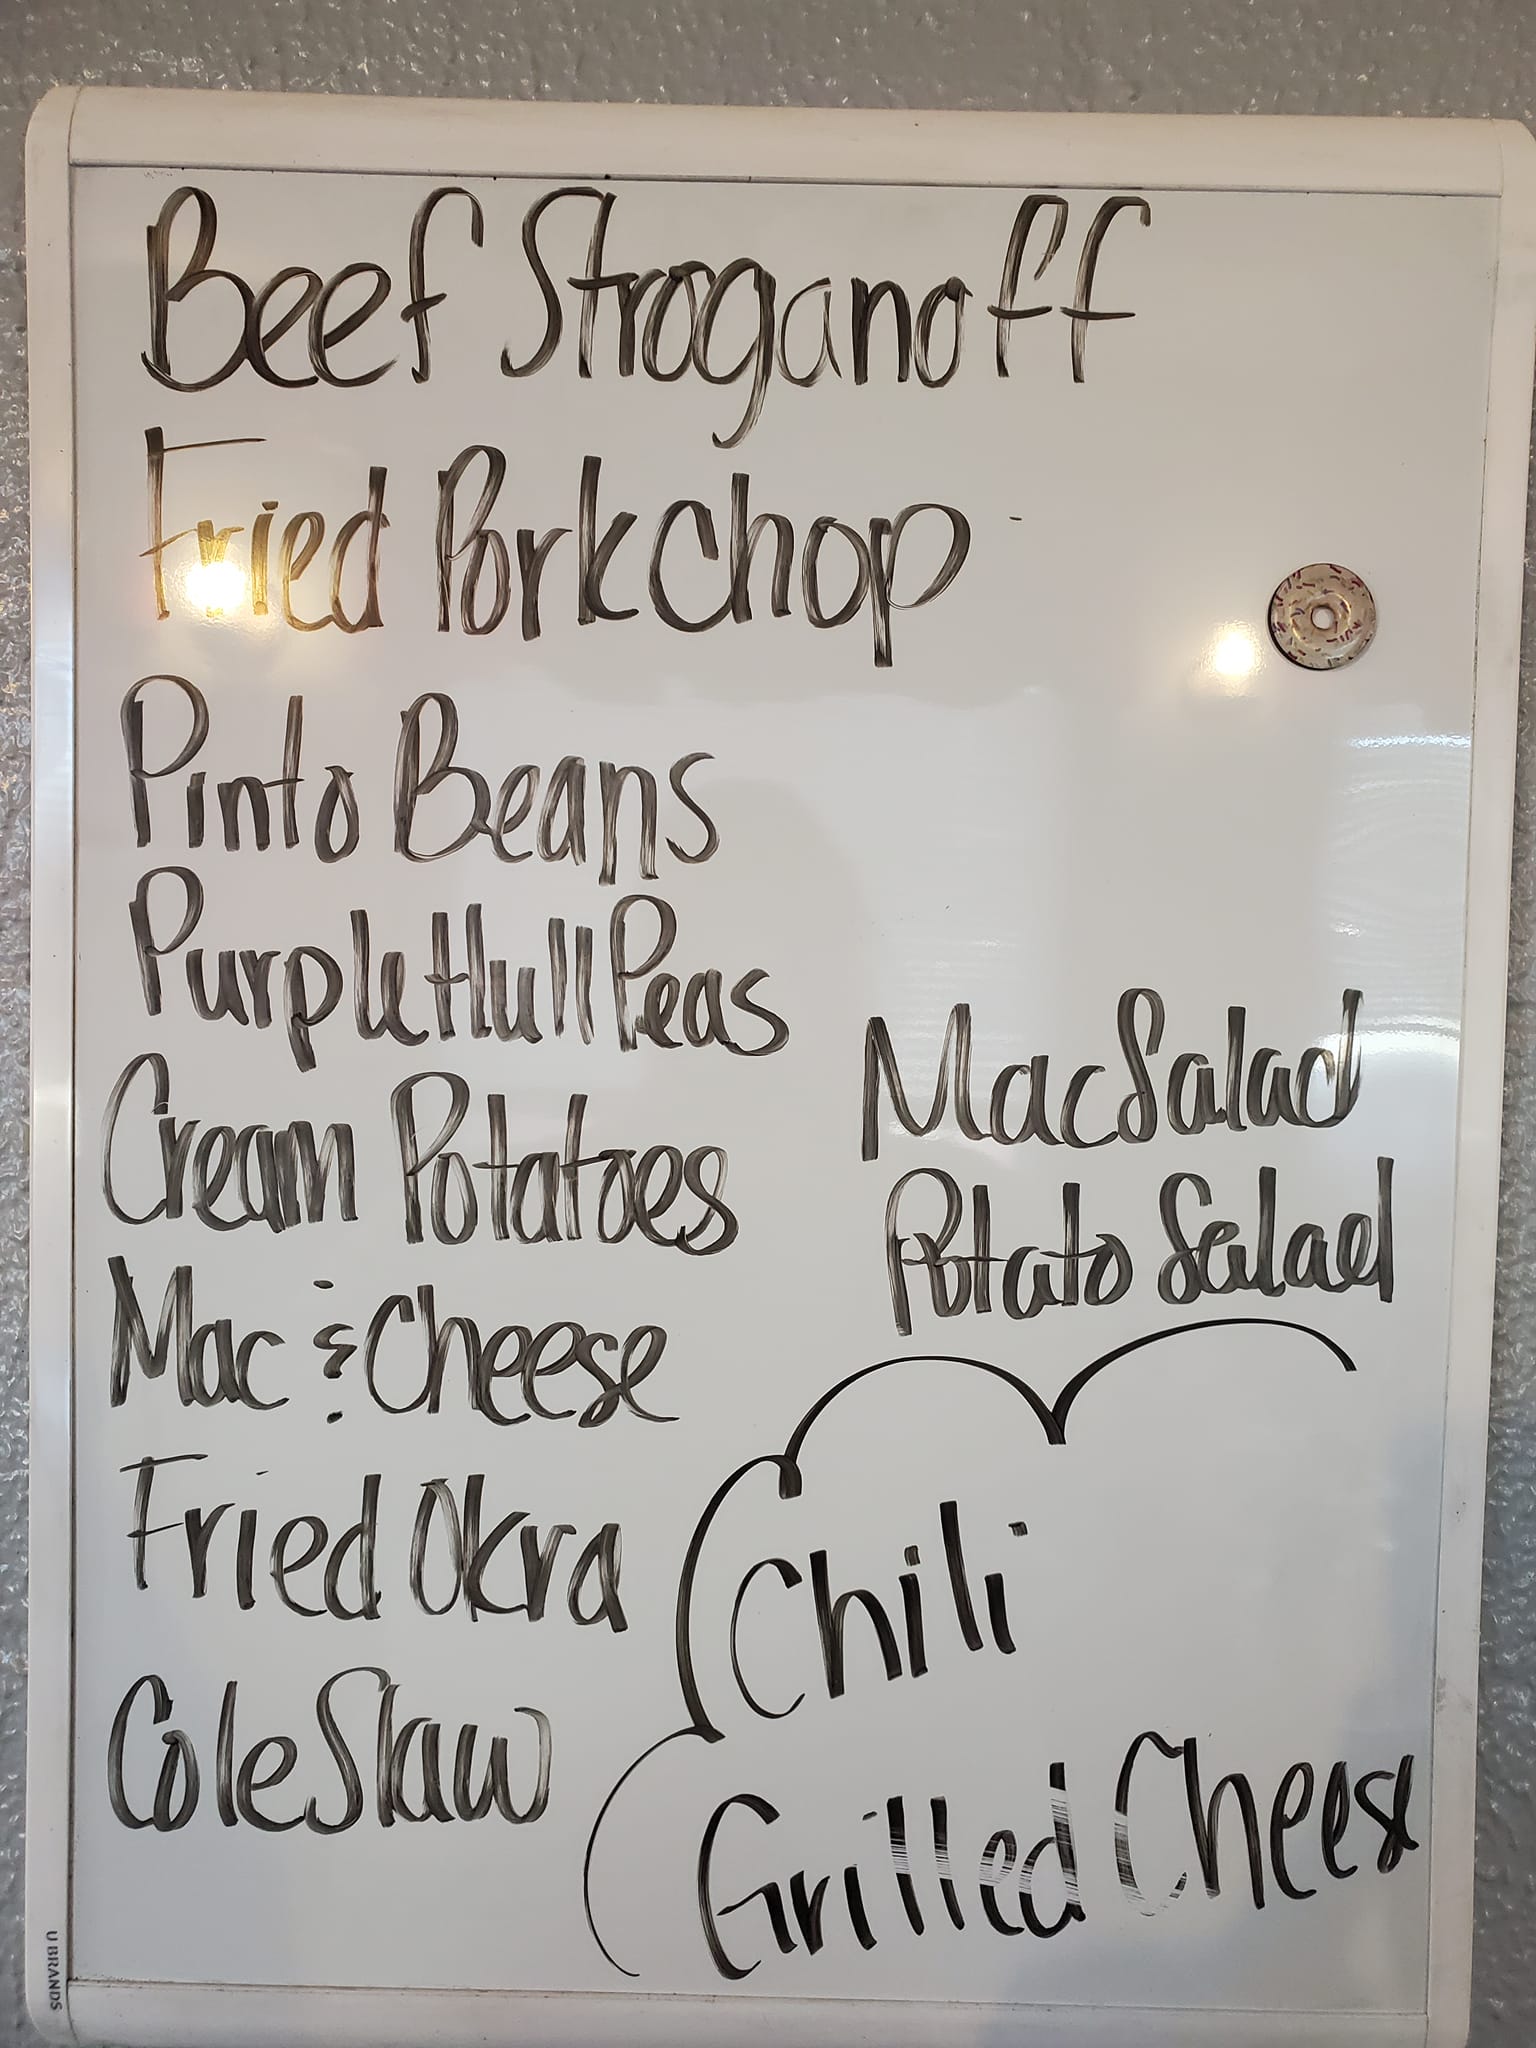 Beef Stroganoff
Fried Pork Chop
Pinto Beans
Purple Hull Peas
Cream Potatoes
Mac & Cheese
Fried Okra
Cole Slaw
Mac Salad
Potato Salad
Chili
Grilled Cheese
U BRANDS